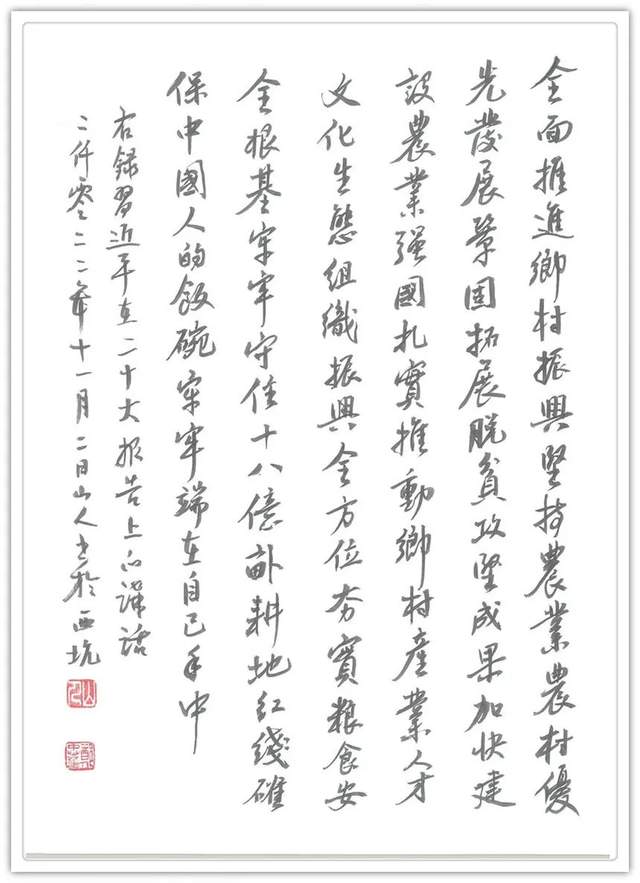 全面推進鄉村振興堅持農業農村優
先發展鞏固拓展脫貧攻堅成果加快建
設農業强國扎實推動鄉村產業人才
文化生態組織振興全方位夯實粮食安
全根基牢牢守住十八億畝耕地紅綫確
保中國人的飯碗牢牢端在自己手中
右録習近平在二十大报告上的講話
二仟零二二年十一月二日山人書於西坑